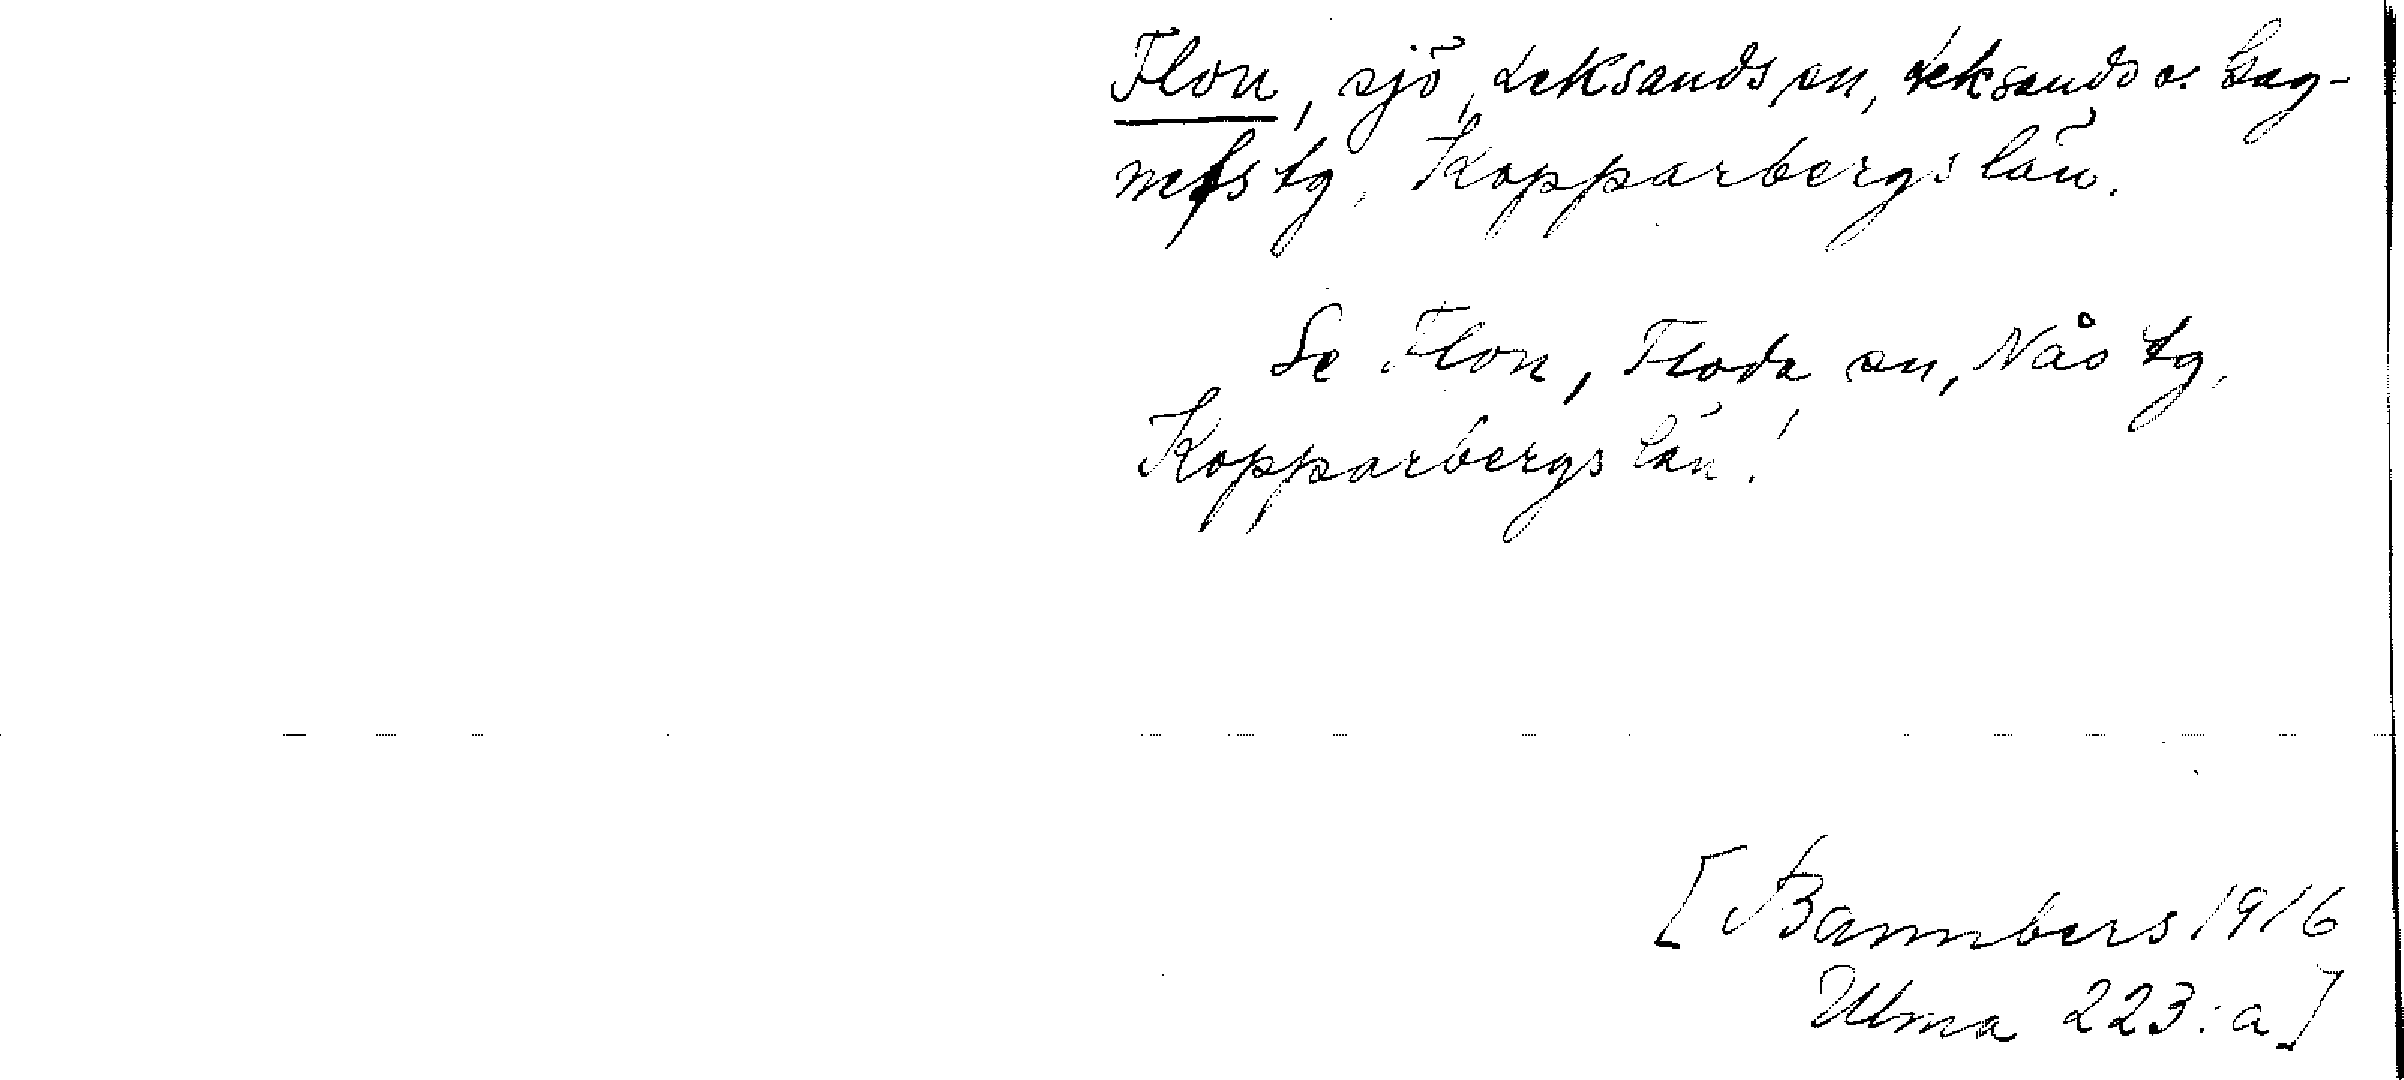 Flon, sjö, Leksands sn, Leksands o. Gag-
nefs tg, Kopparbergs län.
Se Flon, Floda sn, Nås tg,
Kopparbergs län!
[Bannbers 1916
Ulma 223:a]